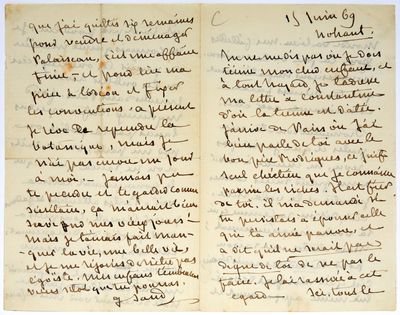 C
15 juin 69
Nohant.
Tu ne me dis pas où je dois
t'écrire mon cher enfant, et
à tout hasard je t'adresse
ma lettre à Constantine
d'où la tienne est datée.
J'arrive de Paris où j'ai
bien parlé de toi avec le
bon père Rodrigues, ce juif
seul chrétien que je connaisse
parmi les riches. Il est fier
de toi. Il m'a demandé si
tu persistais à épouser celle
que tu aimes pauvre, et
a dit qu'il ne serait pas
digne de toi de ne pas le
faire. Je l'ai rassuré à cet
égard — Ici, tout le
que j'ai quitté six semaines
pour vendre et déménager
Palaiseau, est une affaire
finie, et pour lire ma
pièce à l'odéon et fixer
les conventions. à présent
je rêve de reprendre la
botanique, mais je
n'ai pas encore un jour
à moi. — J'aurais pu
te prendre et te garder comme
ça m'aurait bien
servi pour mes vieux jours!
Mais je t'aurais fait man-
quer ta vie, une belle vie,
et je me réjouis de n'être pas
égoïste. Mes enfans t'embrassent
viens sitôt que tu pourras.
G Sand